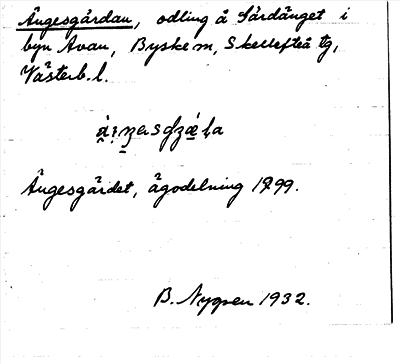 Ängesgärdan, odling å Sårdänget i
byn Avan, Byske sn, Skellefteå tg,
Västerb. l.
Ängesgärdet, ägodelning 1899.
B. Nygren 1932.